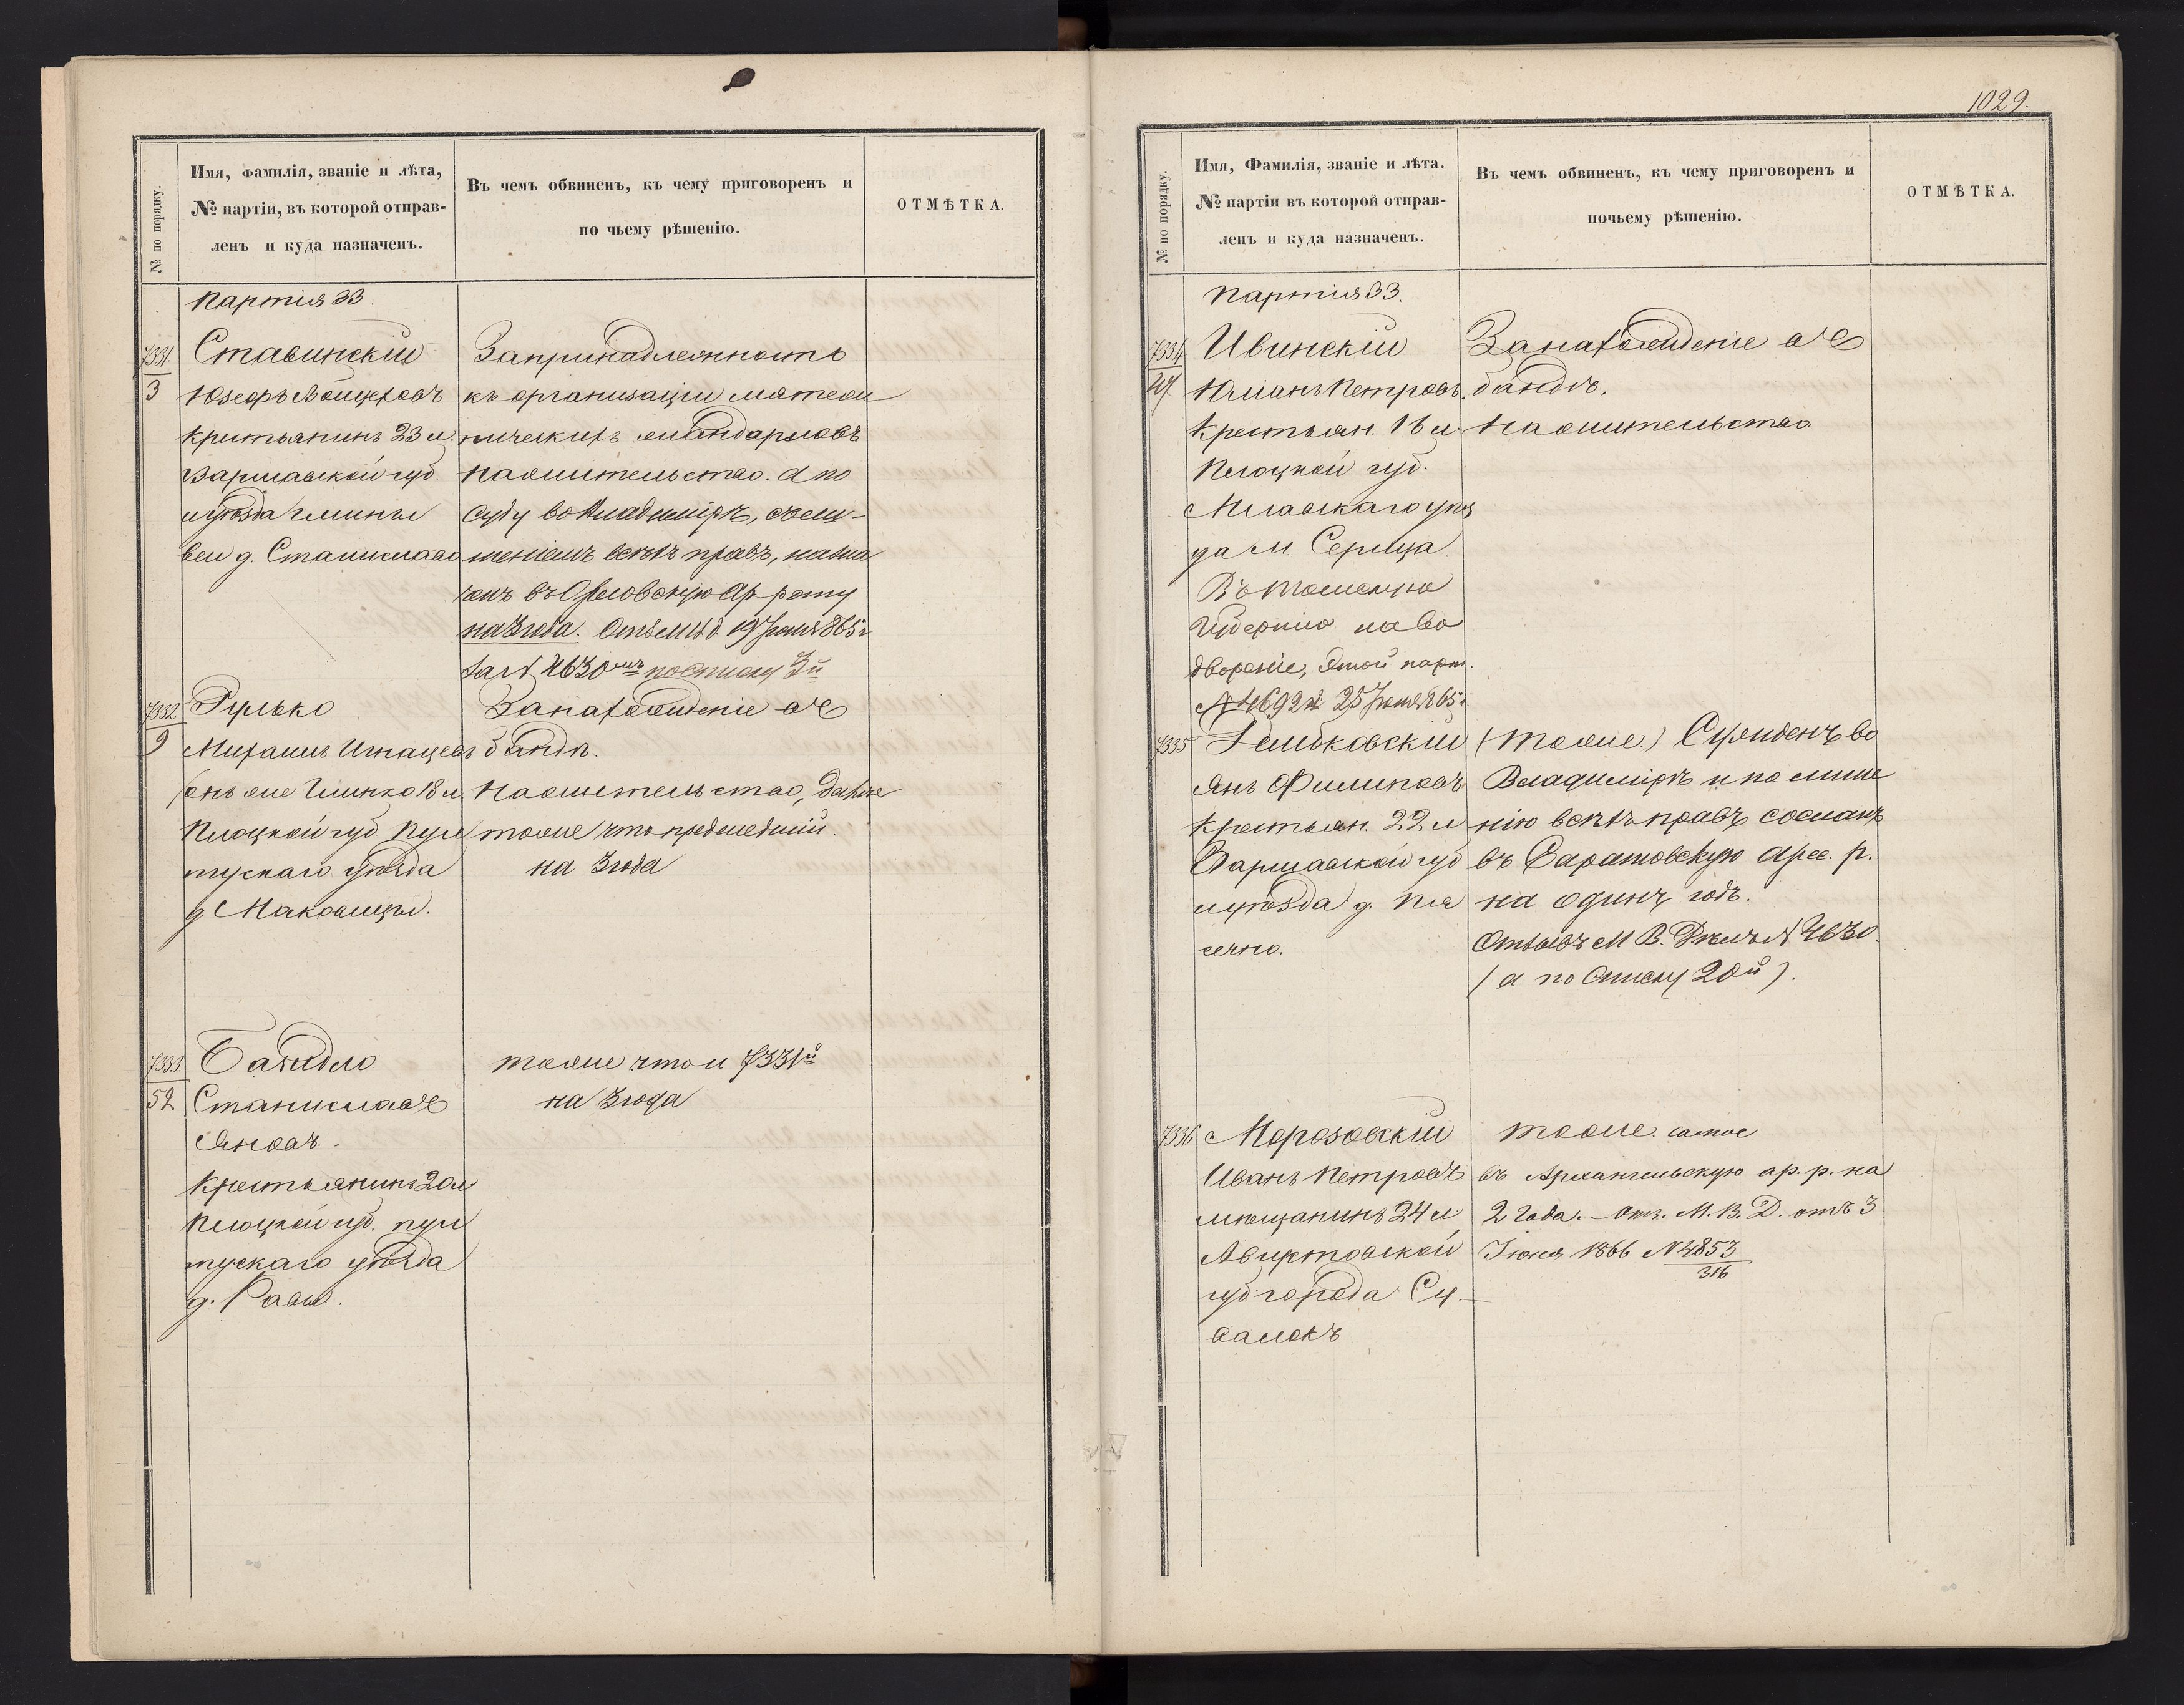 № по порядку.
Имя, фамилія, званіе и лѣта,
№ партіи, въ которой отправ-
ленъ и куда назначенъ.
Въ чемъ обвиненъ, къ чему приговоренъ и
по чьему рѣшенію.
ОТМѢТКА.
Партія 33.
7331.
3
Ставинскій
Юзефъ Войцеховъ
Крестьянинъ 23 л.
Варшавской губ.
и уѣзда гмины
д. Станиславо
За принадлежность
къ организаціи мятеж
ническихъ жандармовъ
На жительство. А по
суду во Владимірѣ, съ лиш-
шеніемъ всѣхъ правъ, назна
ченъ въ Орловскую Ар. роту
на 3 года. 19 Іюня 865 г
за № 4630 по списку 3й
7332
9
Гулько
Михаилъ Игнацевъ
онъ же Глинко 18 л
Плоцкой губ Пул
тускаго уѣзда
д. Маковицы.
За нахожденіе въ
бандѣ.
На жительство, далѣе
тоже что предшедшій.
на 3 года
7333.
52
Станиславъ
Яновъ.
Крестьянинъ 20 л
Плоцкой губ. пул
тускаго уѣзда
д. Равы.
тоже что и 7331й
на 3 года
1029.
№ по порядку.
Имя, Фамилія, званіе и лѣта.
№ партіи въ которой отправ-
ленъ и куда назначенъ.
Въ чемъ обвиненъ, къ чему приговоренъ и
почьему рѣшенію.
ОТМѢТКА.
Партія 33.
7334
Ивинскій
Юліанъ Петровъ.
Крестьян. 18 л
Плоцкой губ.
Млавскаго уѣз
да м. Серпца
Въ Томскую
Губернію на во
двореніе, этой парт.
№ 4692 25 Іюня 865 г.
За нахожденіе въ
бандѣ.
На жительство.
7335
Дембковскій
Янъ Филиповъ
Крестьян. 22 л
Варшавской губ
и уѣзда д. Пя
сечно.
(Тоже) Сужденъ во
Владимірѣ и по лише
нію всѣхъ правъ сосланъ
въ Саратовскую Арес. р.
на одинъ годъ.
Отзывъ М. В. Дѣлъ № 4630.
(а по списку 20й).
7336
Морозовскій
Иванъ Петровъ
мѣщанинъ 24 л
Августовской
губ города Су-
валокъ
тоже самое
въ Архангельскую ар. р. на
2 года. – Отз. М. В. Д. отъ 3
Іюня 1866 № 4853
316